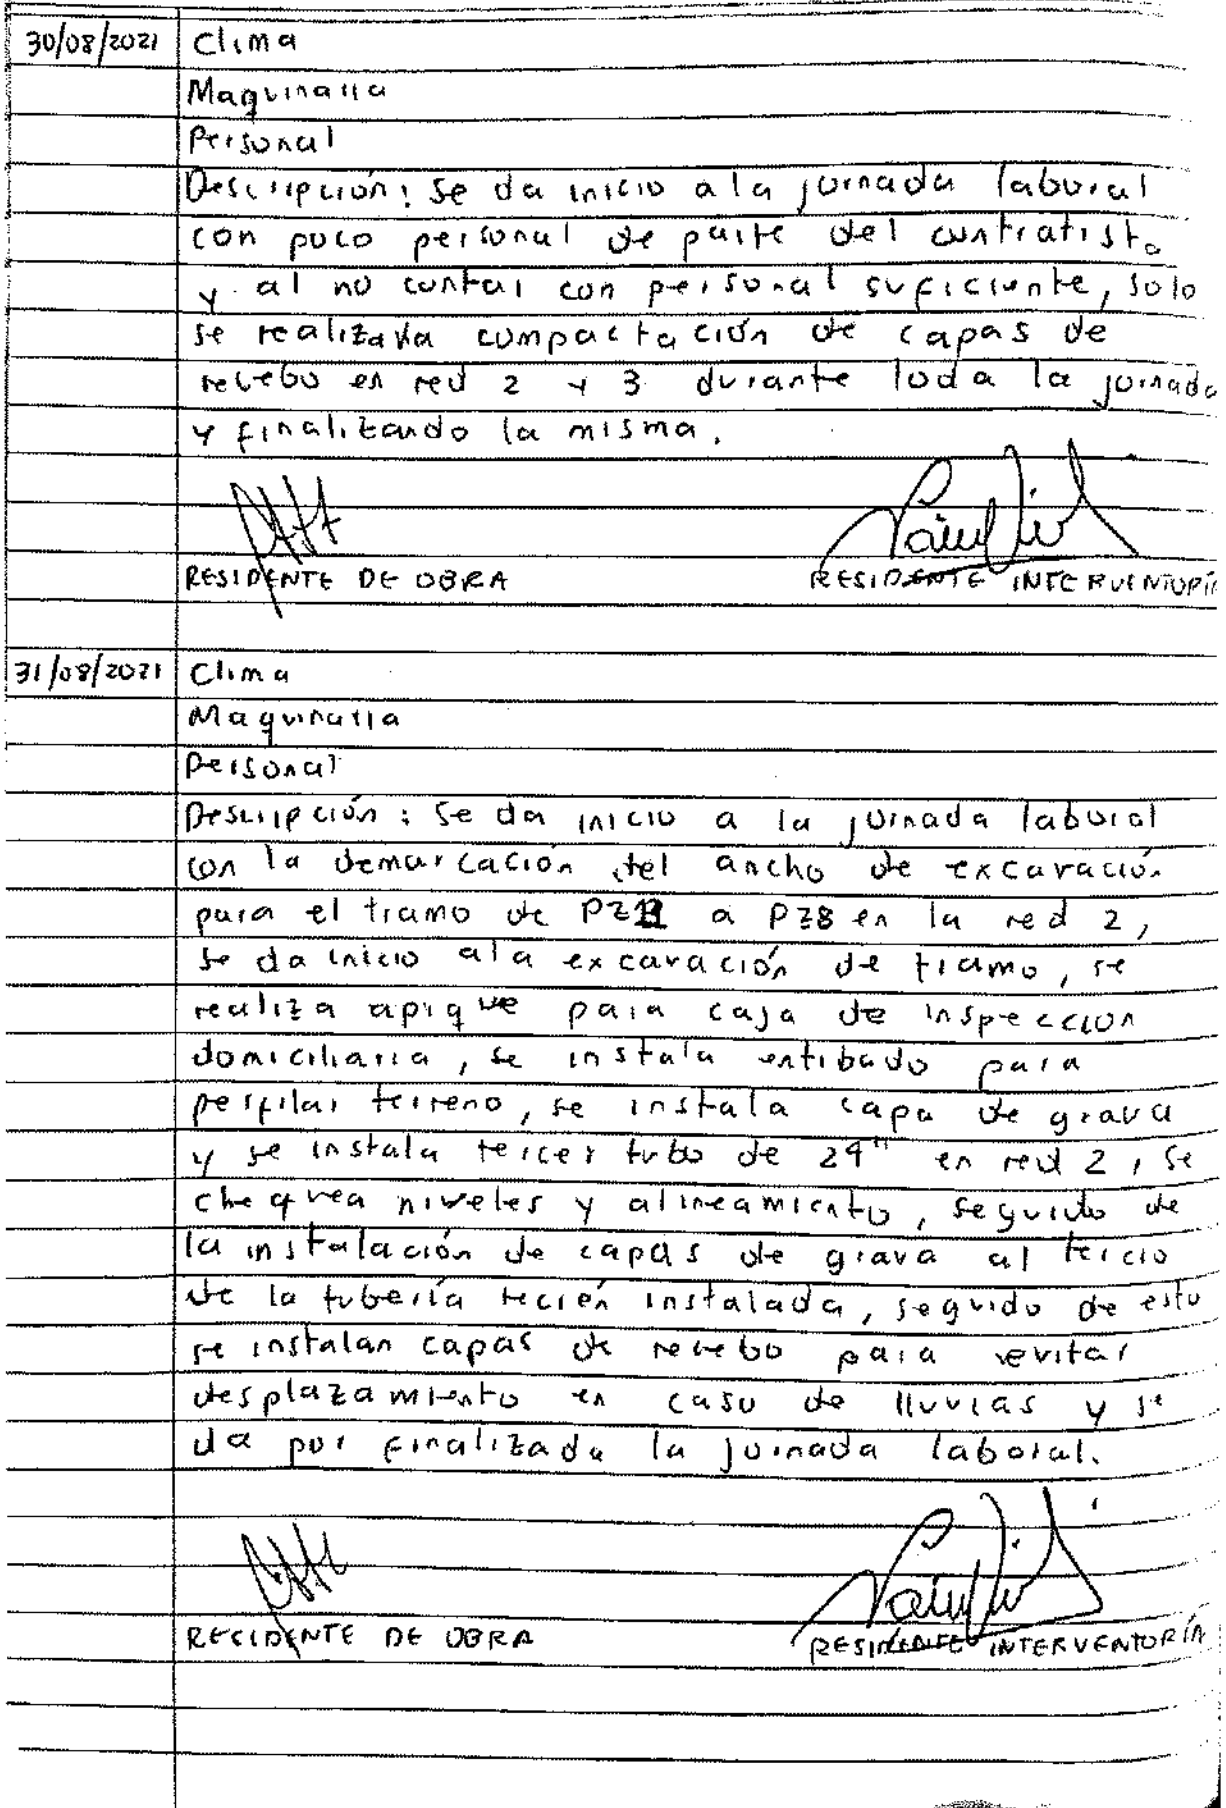 30/08/2021 Clima
Maquinaria
Personal
Descripción: Se da inicio a la jornada laboral
con poco personal de parte del contratista
y al no contar con personal suficiente, solo
se realizara compactación de capas de
recebo en red 2 y 3 durante toda la jornada
y finalizando la misma.
RESIDENTE DE OBRA RESIDENTE INTERVENTORÍA
31/08/2021 Clima
Maquinaria
Personal
Descripción: Se da inicio a la jornada laboral
con la demarcación del ancho de excavación
para el tramo de PZ11 a PZ8 en la red 2,
se da inicio a la excavación de tramo, se
realiza apique para caja de inspección
domiciliaria, se instala entibado para
perfilar terreno, se instala capa de grava
y se instala tercer tubo de 24" en red 2, se
chequea niveles y alineamiento, seguido de
la instalación de capas de grava al tercio
de la tubería recién instalada, seguido de esto
se instalan capas de recebo para evitar
desplazamiento en caso de lluvias y se
da por finalizada la jornada laboral.
RESIDENTE DE OBRA RESIDENTE INTERVENTORÍA